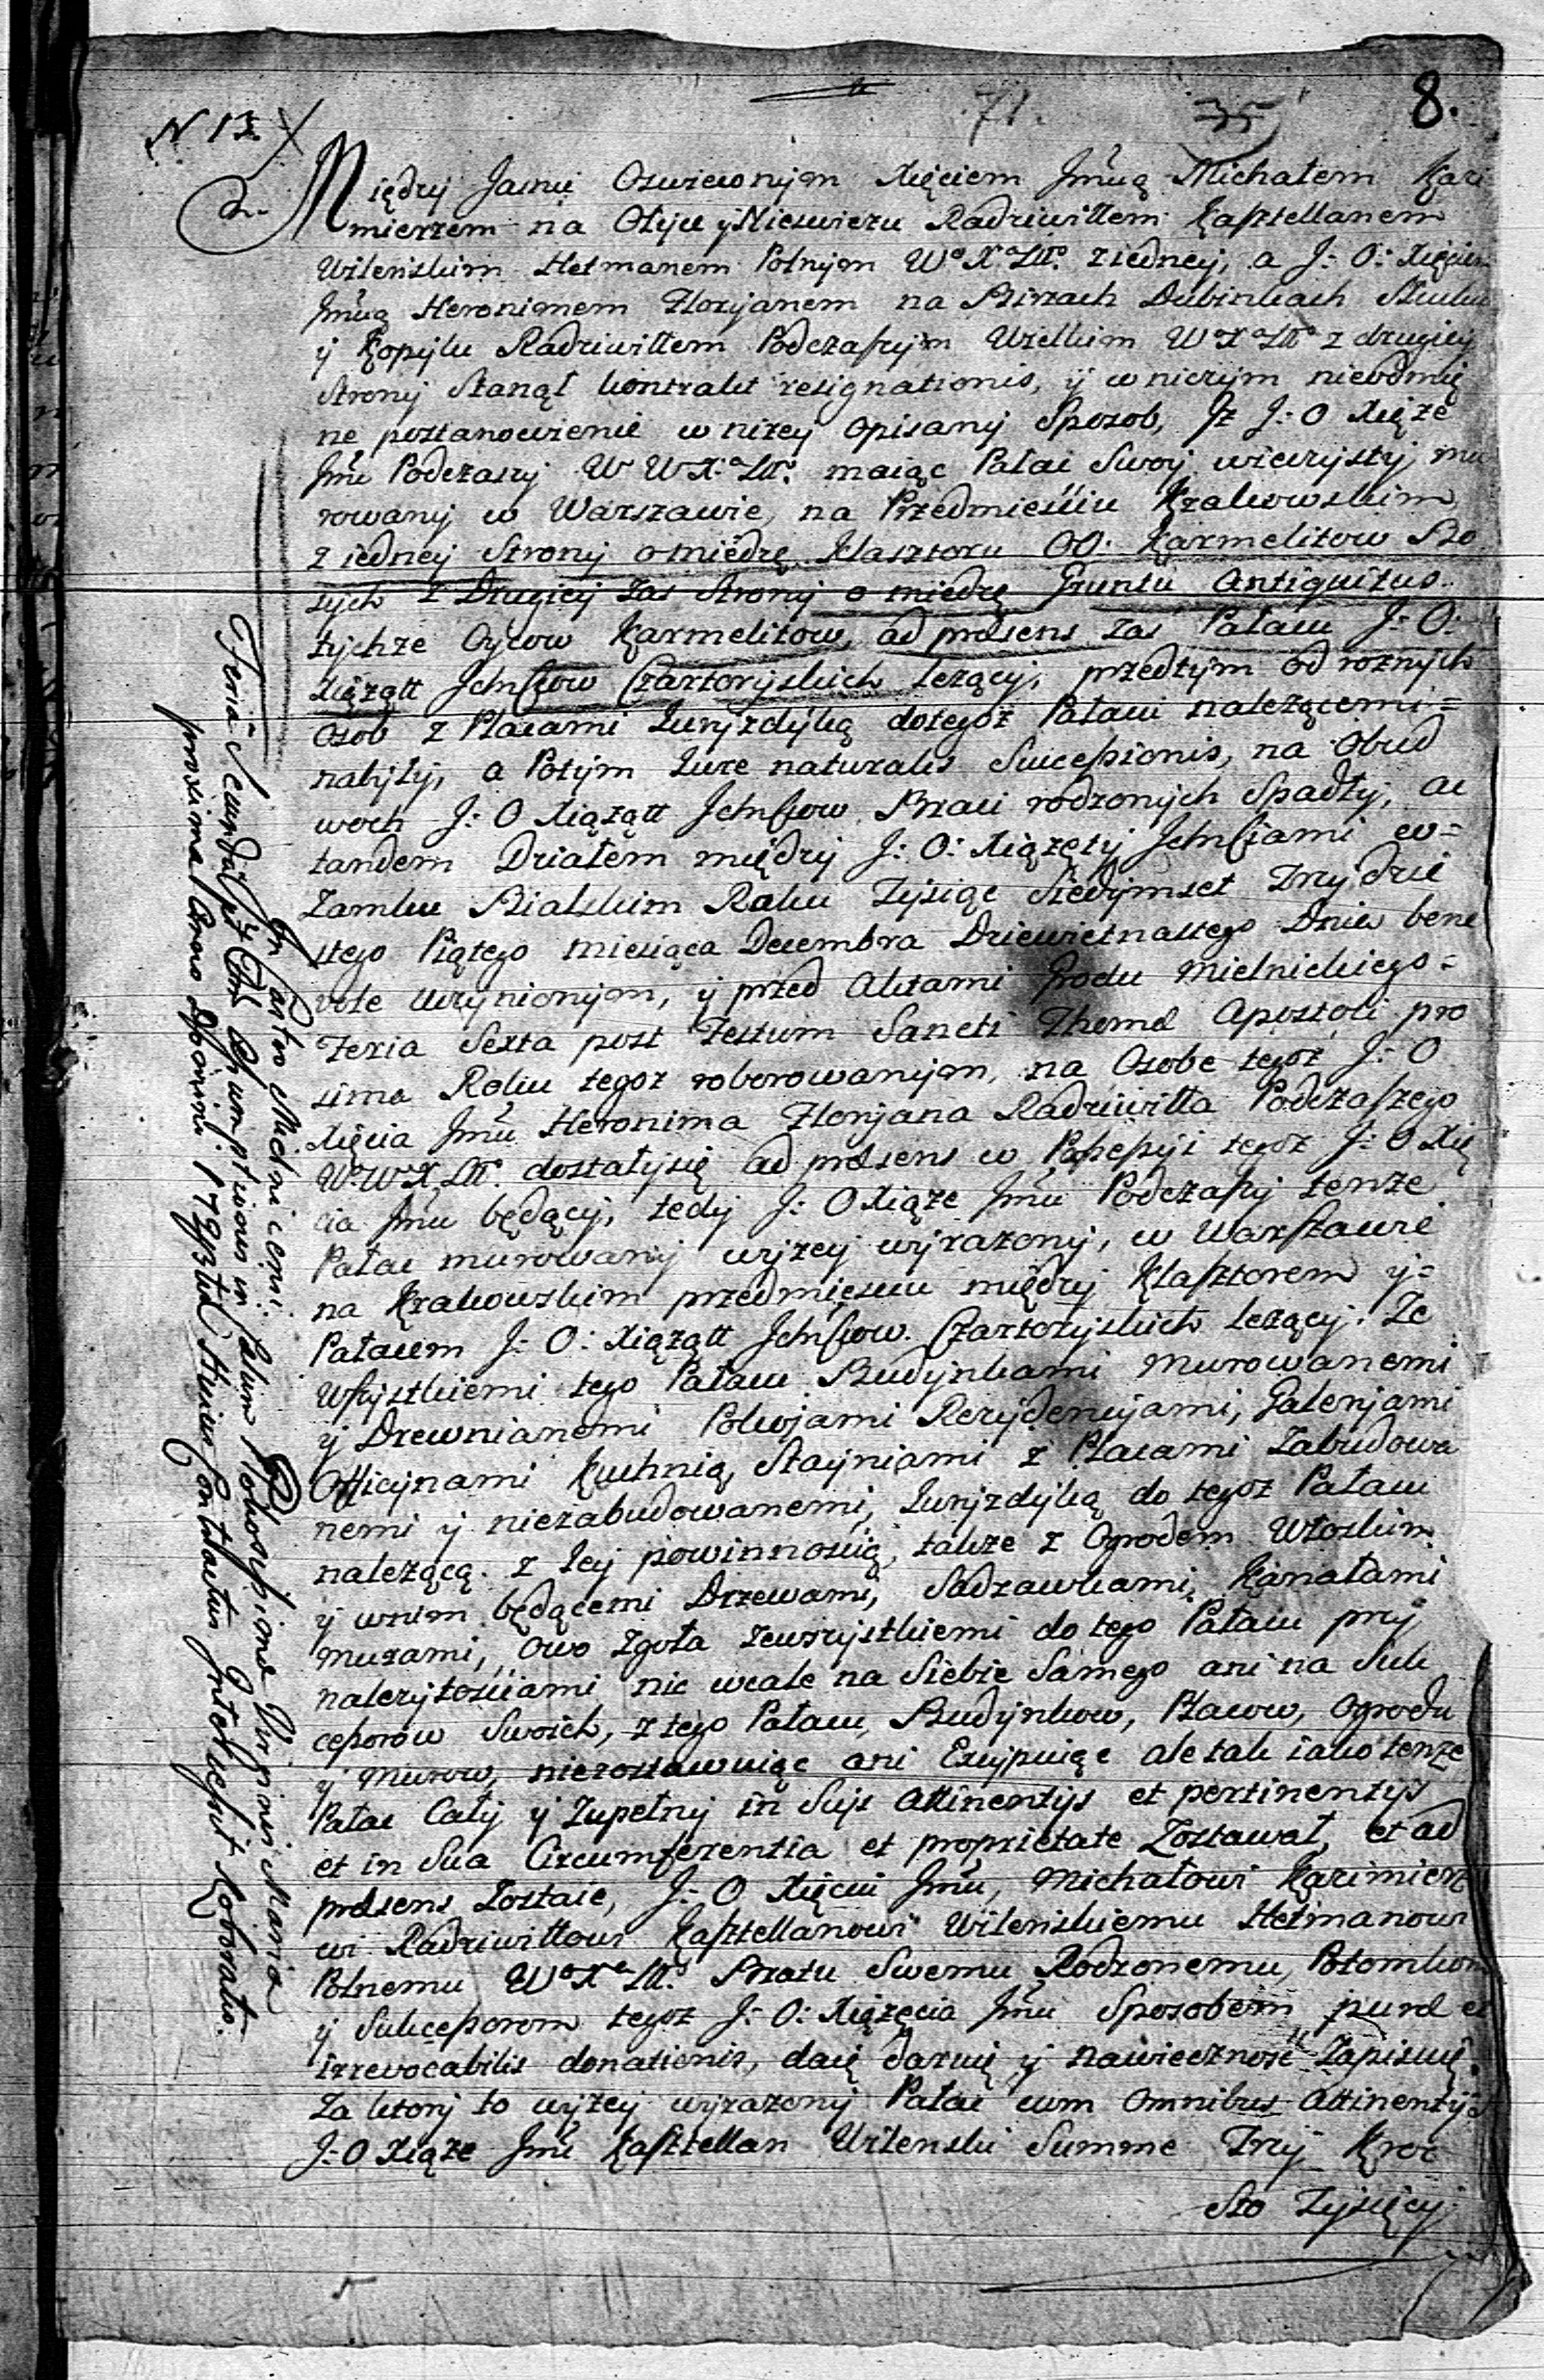 N 13.
71.
35
8.
Między Jasnie Oswieconym Xięciem Jmcią Michałem Kazi
mierzem na Ołyce y Nieswiezu Radziwiłłem Kasztellanem
Wilenskim Hetmanem Polnym Wº Xª Litº. z iedney, a J: O: Xięciem
Jmcią Heronimem Floryanem na Birzach Dubinkach Słucku
y Kopylu Radziwiłłem Podczaszym Wielkim W X Litº z drugiey
strony Stanął kontrakt resignationis, y wniczym nieodmię
ne postanowienie w nizey opisany Sposob, Iz J: O Xiąze
Jmć Podczaszy W W X. Litº. maiąc Pałac Swoy wieczysty, mu
rowany w Warszawie, na Przedmiesciu Krakowskim
z iedney Strony o miedzę Klasztoru OO: Karmelitow Bo
sych z Drugiey zas Strony o miedzę Gruntu Antiquitus
tychze Oycow Karmelitow, ad præsens zas Pałacu J: O:
Xiążątt Ichmściow Czartoryskich lezący, przedtym od roznych
Osob z Placami Juryzdyką dotegoz Pałacu nalezącemi =
nabyty, a Potym Jure naturalis Succesionis, na Obud
woch J: O Xiążątt Ichmściow Braci rodzonych Spadły, ac
tandem Działem między J: O: Xiążęty Ichmściami w =
Zamku Bialskim Roku Tysiąc Siedymset Trzydzie
stego Piątego miesiąca Decembra Dziewietnastego Dnia bene
vole uczynionym, y przed Aktami Grodu Mielnickiego =
Feria Sexta post Festum Sancti Thomæ Apostoli pro
xima Roku tegoz roborowanym, na Osobe tegoz J: O
Xięcia Jmci Heronima Floryana Radziwiłła Podczaszego
W W X Litº. dostałysię ad præsens w Possessyi tegoz J: O Xię
cia Jmci będący, tedy J: O Xiąze Jmć Podczaszy tenze
Pałac murowany wyzey wyrazony, w Warszawie
na Krakowskim przedmięsciu między Klasztorem y =
Pałacem J: O: Xiążątt Ichmściow Czartoryskich lezący. Ze
Wszystkiemi tego Pałacu Budynkami Murowanemi
y Drewnianemi Pokojami Rezydencyjami, Galeryjami
Officynami Kuchnią, Stayniami z Placami Zabudowa
nemi y niezabudowanemi, Juryzdyką do tegoz Pałacu
nalezącą. z Jey powinnoscią, takze z Ogrodem Włoskim
y wnim będącemi Drzewami, Sadzawkami, Kanałami
murami, Owo zgoła zewszystkiemi do tego Pałacu przy
nalezytosciami nic wcale na Siebie Samego ani na Suk
cesorow Swoich, z tego Pałacu, Budynkow, Placow, Ogrodu
y murow, niezostawuiąc ani Exypuiąc ale tak iako tenze
Pałac Cały y Zupełny in Suys Attinentys et pertinentys
et in Sua Circumferentia et proprietate Zostawał, et ad
præsens Zostaie, J: O Xięciu Jmci, Michałowi Kazimierz
wi Radziwiłłowi Kasztellanowi Wilenskiemu Hetmanowi
Polnemu Wº Xª Litº. Bratu Swemu Rodzonemu, Potomkom
y Sukcesorom tegoz J: O: Xiążęcia Jmci Sposobem puræ et
irrevocabilis donationis, daię daruię, y nawiecznosć Zapisuię.
Za ktory to wyzey wyrazony Pałac cum Omnibus Attinentys
J: O Xiąze Jmć Kasztellan Wilenski Summe Trzy Kroc
Sto Tysięcy
In Castro Mielnicensi
Feria Secunda post Festum Assumptionis in Cælum Gloriosissimæ Virginis Mariæ
proxima Anno Domini